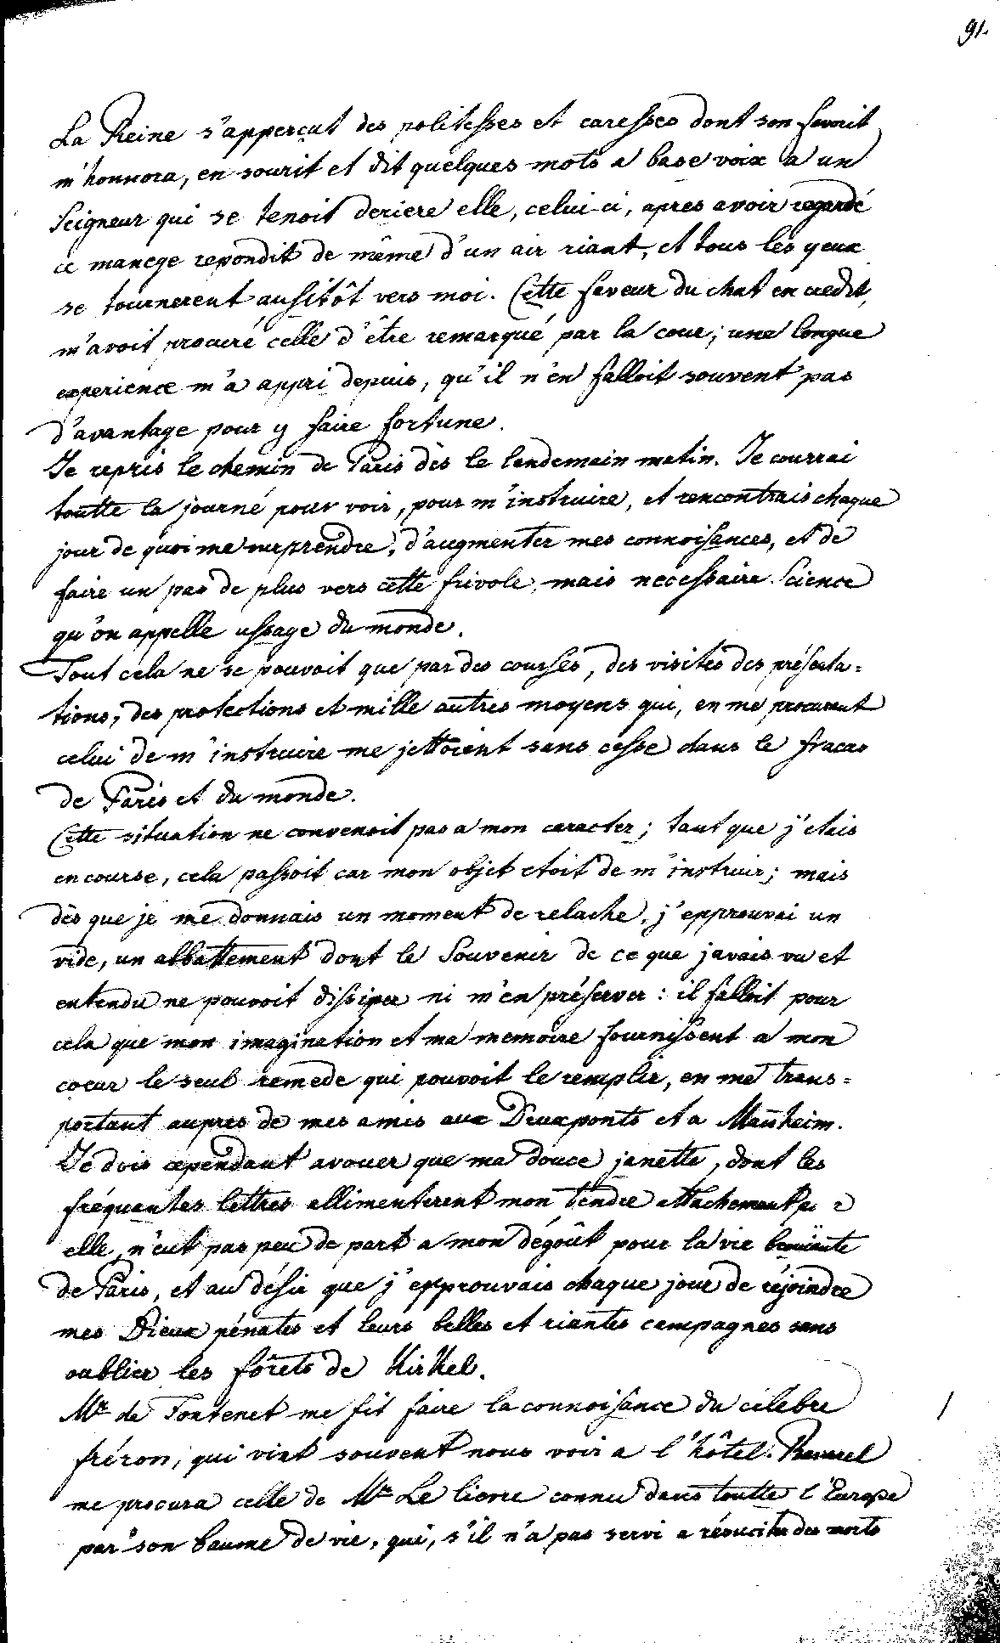 91.
La Reine s'apperçut des politesses et caresses dont son favorit
m'honnora, en sourit et dit quelques mots a base voix a un
Seigneur qui se tenoit deriere elle, celui-ci, apres avoir regardé
ce manege repondit de même d'un air riant, et tous les yeux
se tournerent ausitôt vers moi. Cette faveur du chat en credit,
m'avoit procuré celle d'être remarqué par la cour; une longue
experience m'a appri depuis, qu'il n'en falloit souvent pas
d'avantage pour y faire fortune.
Je repris le chemin de Paris dès le lendemain matin. Je courrai
toutte la journé pour voir, pour m'instruire, et rencontrais chaque
jour de quoi me surprendre, d'augmenter mes connoisances, et de
faire un pas de plus vers cette frivole, mais necessaire Science
qu'on appelle ussage du monde.
Tout cela ne se pouvoit que par des courses, des visites des présenta=
tions, des protections et mille autres moyens qui, en me procurant
celui de m'instruire me jettoient sans cesse dans le fracas
de Paris et du monde.
Cette situation ne convenoit pas a mon caracter; tant que j'etais
en course, cela passoit car mon objet etoit de m'instruir; mais
dès que je me donnais un moment de relache, j'epprouvai un
vide, un abbattement dont le Souvenir de ce que javais vu et
entendu ne pouvoit dissiper ni m'en préserver: il falloit pour
cela que mon imagination et ma memoire fournissent a mon
coeur le seul remede qui pouvoit le remplir, en me trans=
portant aupres de mes amis aux Deuxponts et a Manheim.
Je dois cependant avouer que ma douce janette, dont les
fréquantes lettres allimenterent mon tendre attachement pr
elle, n'eut pas peu de part a mon dégoût pour la vie bruïante
de Paris, et au désir que j'epprouvais chaque jour de rejoindre
mes Dieux pénates et leurs belles et riantes campagnes sans
oublier les forêts de Kirkel.
Mr de Fontenet me fit faire la connoisance du célebre
fréron, qui vint souvent nous voir a l'hôtel.
me procura celle de Mr Le lievre connu dans toutte l'Europe
par son baume de vie, qui, s'il n'a pas servi a résuciter des morts